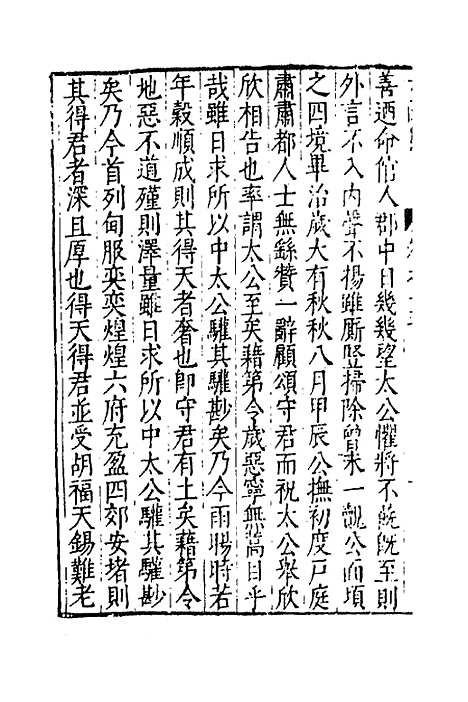 善迺命倌人郡中日幾幾望太公懼將不能既至則
外言不入内聲不揚雖廝豎掃除曾未一覿公面頃
之四境畢治歲大有秋秋八月甲辰公撫初度戸庭
肅肅郡人士無繇贊一辭顧頌守君而祝太公舉欣
欣相告也率謂太公至矣藉第令歲惡寧無蒿目乎
哉雖日求所以中太公驩其驩尠矣乃今雨暘時若
年穀順成則其得天者奢也即守君有土矣藉第令
地惡不道殣則澤量雖日求所以中太公驩其驩尠
矣乃今首列甸服奕奕煌煌六府充盈四郊安堵則
其得君者深且厚也得天得君並受胡福天錫難老